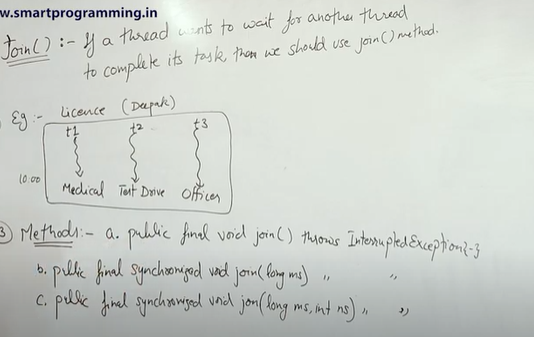 w.smartprogramming.in
Join() :- If a thread wants to wait for another thread
to complete its task, then we should use join() method.
Eg :- Licence (Deepak)
t1 t2 t3
10:00
Medical Test Drive Officer
3 Methods:- a. public final void join() throws InterruptedException{-}
b. public final synchronized void join(long ms) " "
c. public final synchronized void join(long ms, int ns) " "